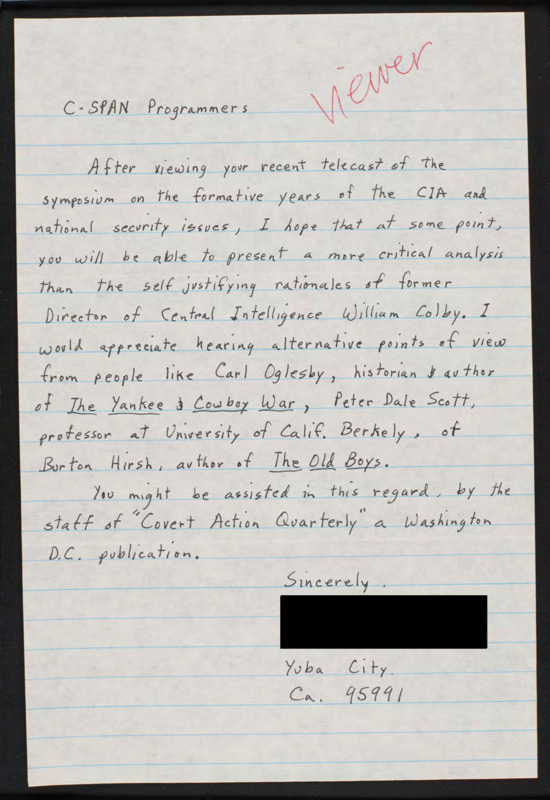 viewer
C-SPAN Programmers
After viewing your recent telecast of the
symposium on the formative years of the CIA and
national security issues, I hope that at some point,
you will be able to present a more critical analysis
than the self justifying rationales of former
Director of Central Intelligence William Colby. I
would appreciate hearing alternative points of view
from people like Carl Oglesby, historian & author
of The Yankee & Cowboy War, Peter Dale Scott,
professor at University of Calif. Berkely, of
Burton Hirsh, author of The Old Boys.
You might be assisted in this regard, by the
staff of "Covert Action Quarterly" a Washington
D.C. publication.
Sincerely.
Yuba City.
Ca. 95991